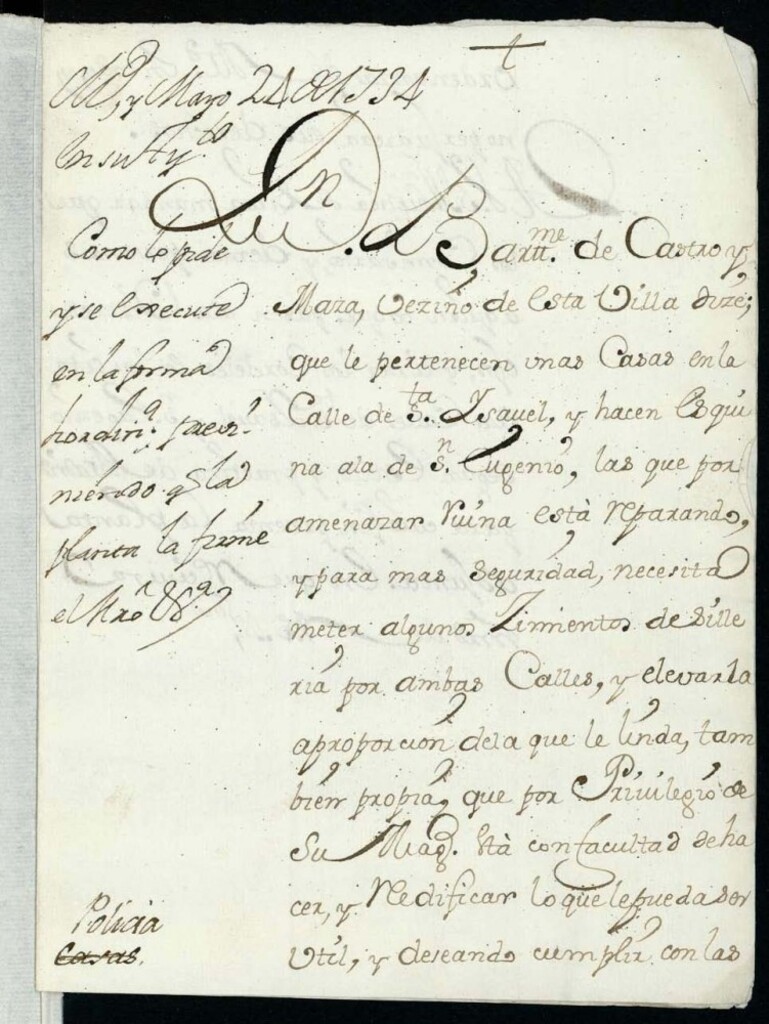 +
Md. y Mayo 24 de 1734
En su Ayto
Como lo pide
y se execute
en la forma
planta la firme
el Mro
Dn. Bartme. de Castro y
Maza, vezino de esta Villa dize;
que le pertenecen unas Casas en la
Calle de Sta. Ysavel, y hacen esqui
na ala de Sn. Eugenio, las que por
amenazar ruina està reparando,
y para mas seguridad, necesita
meter algunos Zimientos de sille
ria por ambas Calles, y elevarla
aproporcion dela que le linda, tam
bien propia, que por Privilegio de
Su Magd. està con facultad de ha
cer, y Redificar lo que le pueda ser
Util, y deseando cumplir con las
Policia
Casas.